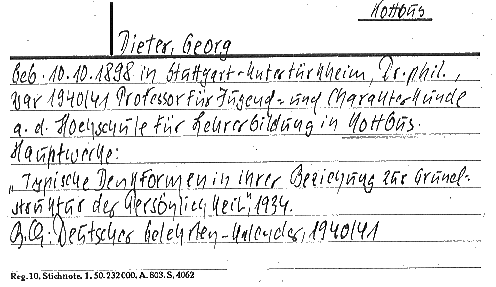 Kottbus
Dieter, Georg
Geb. 10.10.1898 in Stuttgart-Untertürkheim, Dr. phil.,
war 1940/41 Professor für Jugend- und Charakterkunde
a. d. Hochschule für Lehrerbildung in Kottbus.
Hauptwerke:
„Typische Denkformen in ihrer Beziehung zur Grund-
struktur der Persönlichkeit", 1934.
B.Q.: Deutscher Gelehrten-Kalender, 1940/41
Reg. 10. Stichnote. 1. 50. 232000. A. 803. S. 4062